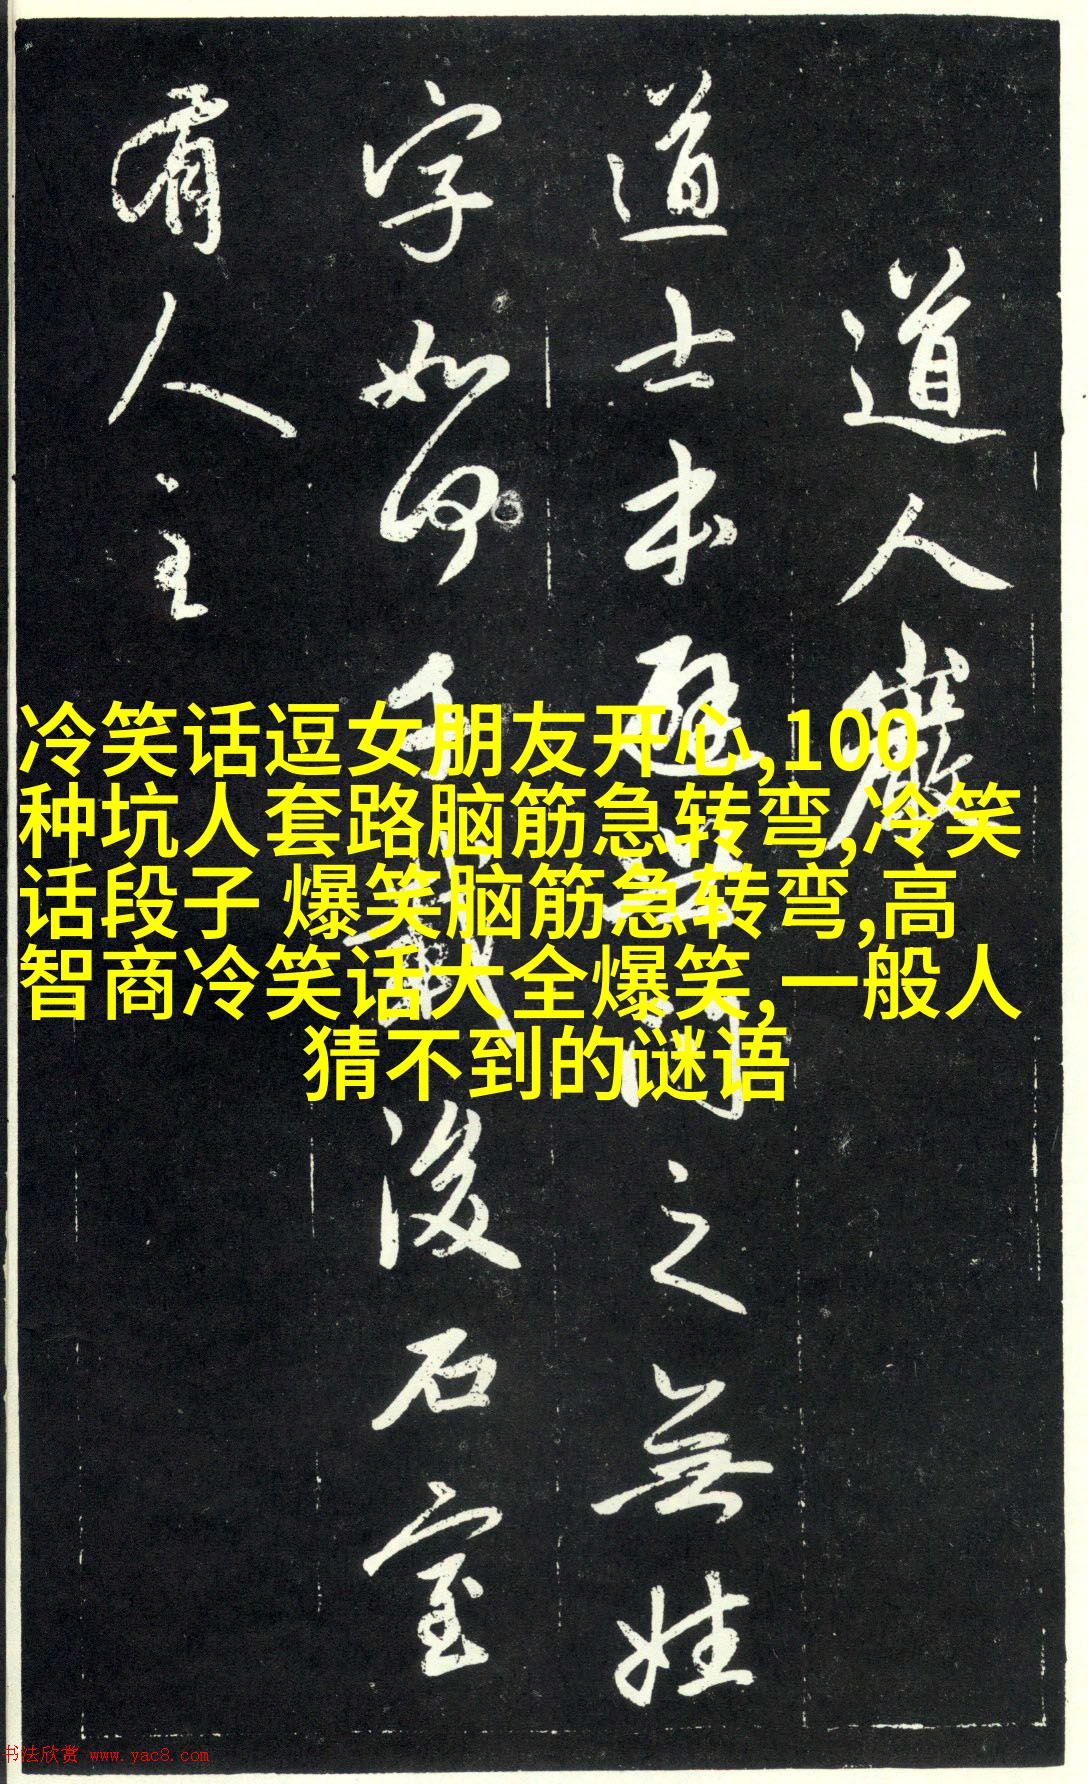 道人巖
道士本避之無姓
字如何千載後石室
有人主
冷笑话逗女朋友开心,100
种坑人套路脑筋急转弯,冷笑
话段子 爆笑脑筋急转弯,高
智商冷笑话大全爆笑,一般人
猜不到的谜语
书法欣赏 www.yac8.com